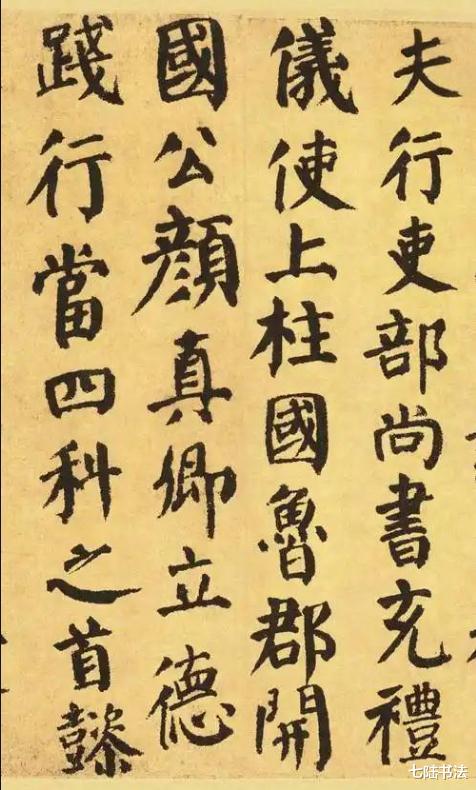 夫行吏部尚書充禮
儀使上柱國魯郡開
國公顔真卿立德
踐行當四科之首懿
七陆书法